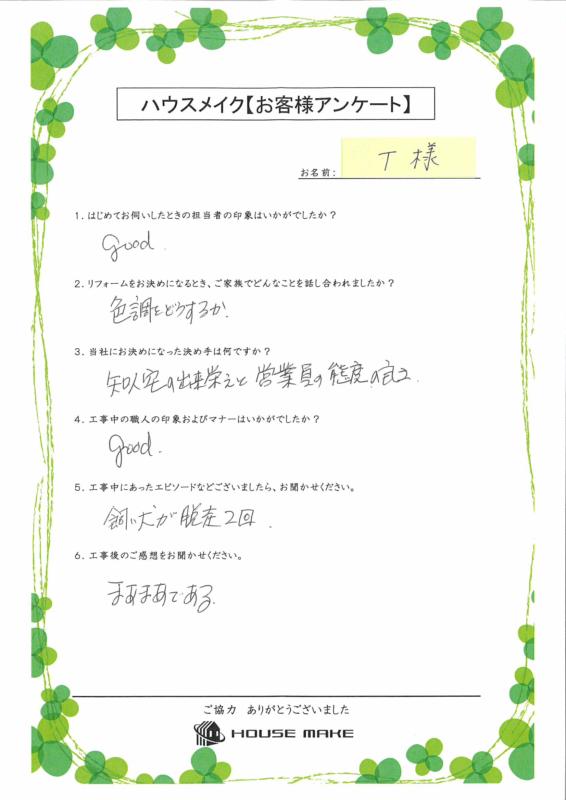 ハウスメイク【お客様アンケート】
お名前: T 様
1. はじめてお伺いしたときの担当者の印象はいかがでしたか?
good.
2. リフォームをお決めになるとき、ご家族でどんなことを話し合われましたか?
色調をどうするか.
3. 当社にお決めになった決め手は何ですか?
知人宅の出来栄えと営業員の態度の良さ.
4. 工事中の職人の印象およびマナーはいかがでしたか?
good.
5. 工事中にあったエピソードなどございましたら、お聞かせください。
飼い犬が脱走2回.
6. 工事後のご感想をお聞かせください。
まあまあである.
ご協力 ありがとうございました
HOUSE MAKE